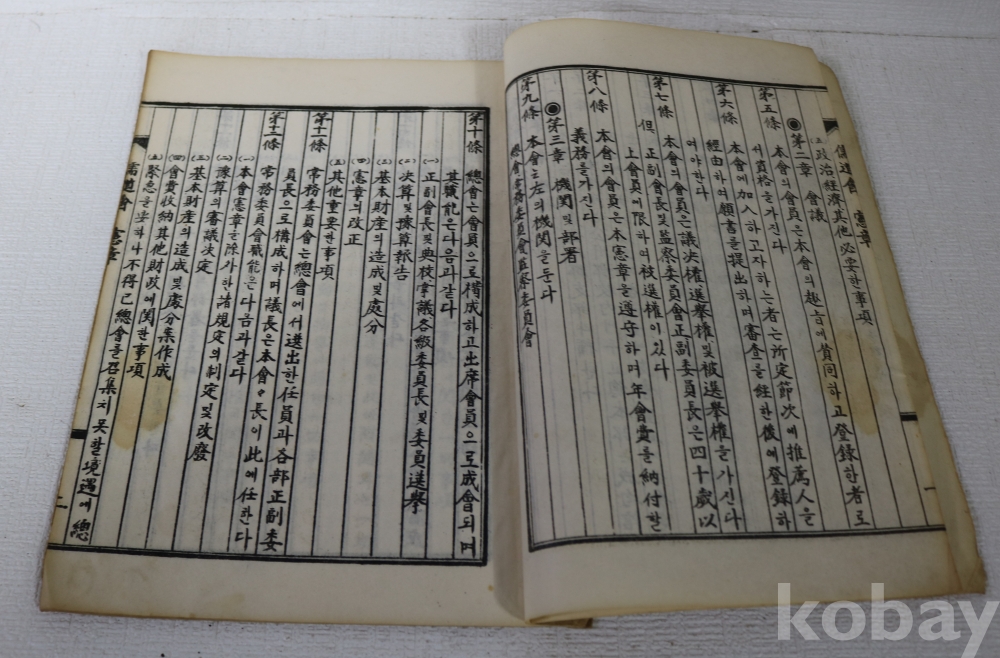 儒道會 憲章
(五)政治經濟其他必要한事項
◉第二章 會議
第五條 本會의會員은本會의趣旨에贊同하고登錄한者로
서員格을가진다
本會에加入하고자하는者는所定節次에推薦人을
經由하여願書를提出하며審査를經한後에登錄하
여야한다
第六條
第七條 本會의會員은議決權選擧權및被選擧權을가진다
但 正副會長및監察委員會正副委員長은四十歲以
上會員에限하여被選權이있다
第八條 本會의會員은本憲章을遵守하며年會費를納付할
義務를가진다
◉第三章 機関및部署
第九條 本會는左의機関을둔다
總會常務委員會監察委員會
第十條 總會는會員으로構成하고出席會員으로成會되며
其職能은다음과같다
(一)正副會長및典校韋議各級委員長및委員選擧
(二)決算및豫算報告
(三)基本財產의造成및處分
(四)憲章의改正
(五)其他重要한事項
第十一條 常務委員會는總會에서選出한任員과各部正副委
員長으로構成하며議長은本會會長이此에任한다
第十二條 常務委員會職能은다음과같다
(一)本會憲章을除外한諸規定의制定및改廢
(二)豫算의審議決定
(三)基本財產의造成및處分案作成
(四)會費收納其他財政에関한事項
(五)緊急을要하나不得已總會를召集치못할境遇에總
儒道會 憲章
一
二
kobay